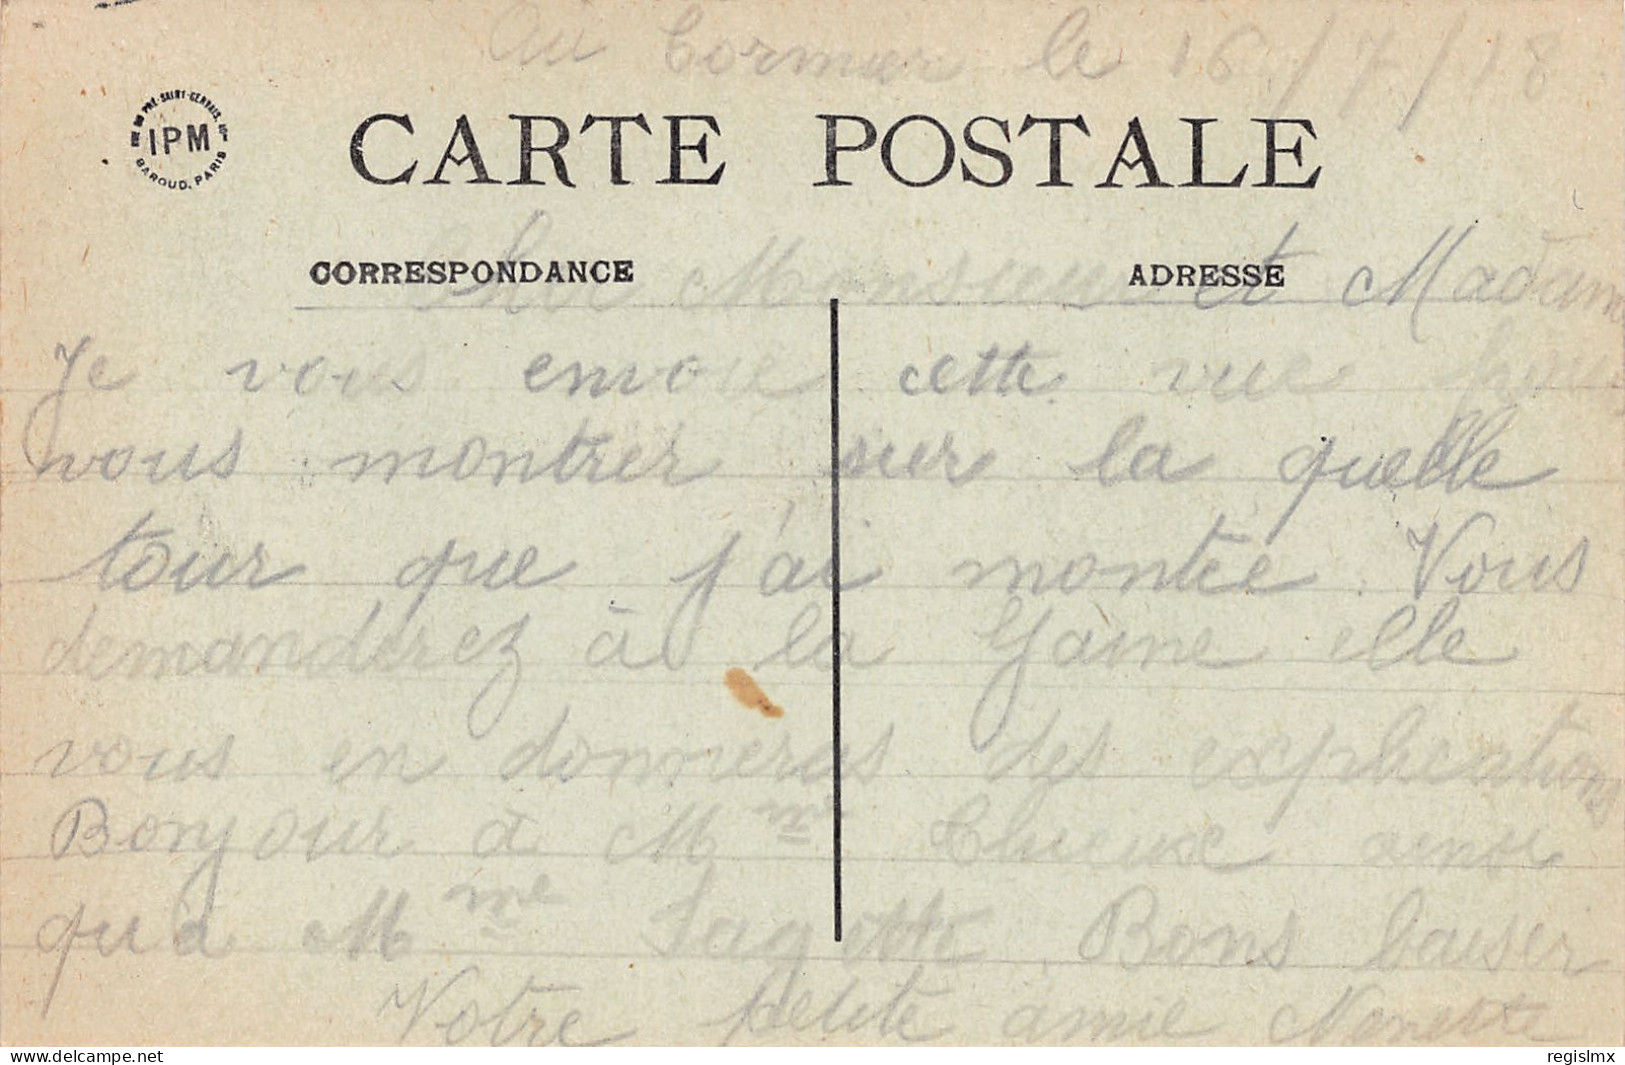 au Cormier le 16/7/18
RUE DU PRÉ-SAINT-GERVAIS
IPM
BAROUD, PARIS
CARTE POSTALE
CORRESPONDANCE
ADRESSE
Monsieur et Madame
Je vous envoie cette vue pour
vous montrer sur la quelle
tour que j'ai montée. Vous
demanderez à la Yaine elle
vous en donneras des explications
Bonjour à Mme ainsi
qu'a Mme Sagette. Bons baiser
Votre petite amie Nenette
delcampe.net
regislmx